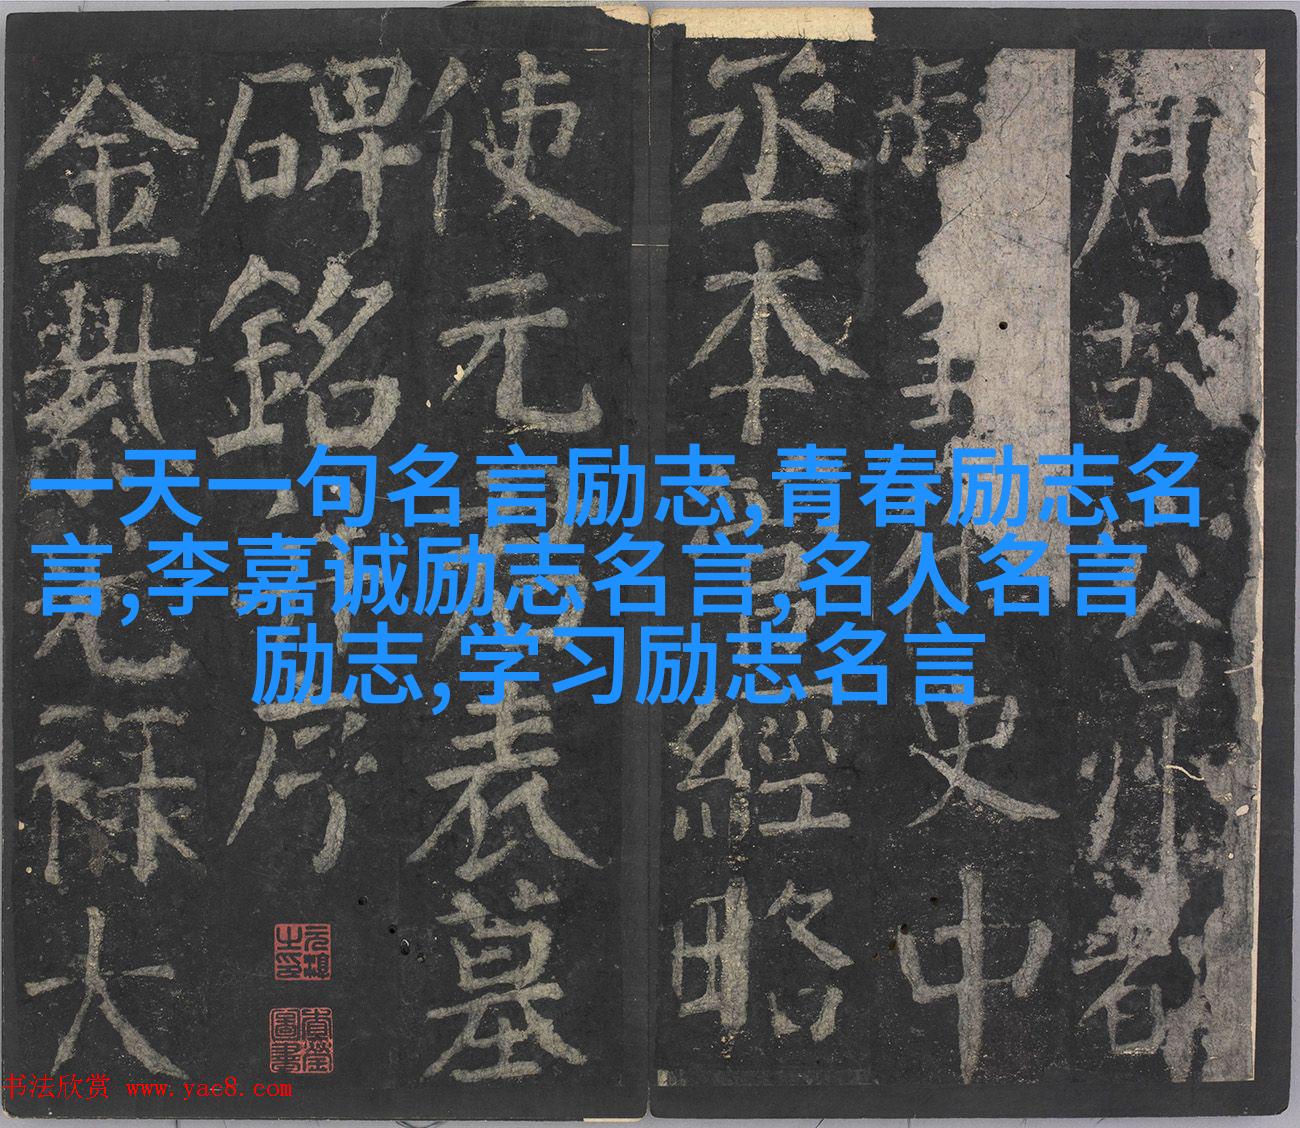 唐故容州都
史中
丞本管經略
使元君表墓
碑銘并序
金紫光祿大
一天一句名言励志,青春励志名
言,李嘉诚励志名言,名人名言
励志,学习励志名言
书法欣赏 www.yac8.com